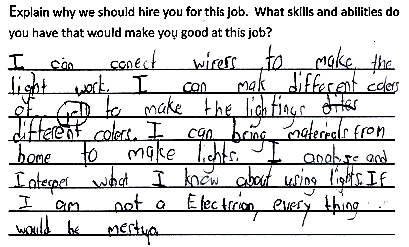 Explain why we should hire you for this job. What skills and abilities do
you have that would make you good at this job?
I can conect wirers to make the
light work. I can mak different colers
of to make the lightings
different colers. I can bring materials from
home to make lights. I and
Interper what I know about using lights. If
I am not a Electrcion, every thing
would be